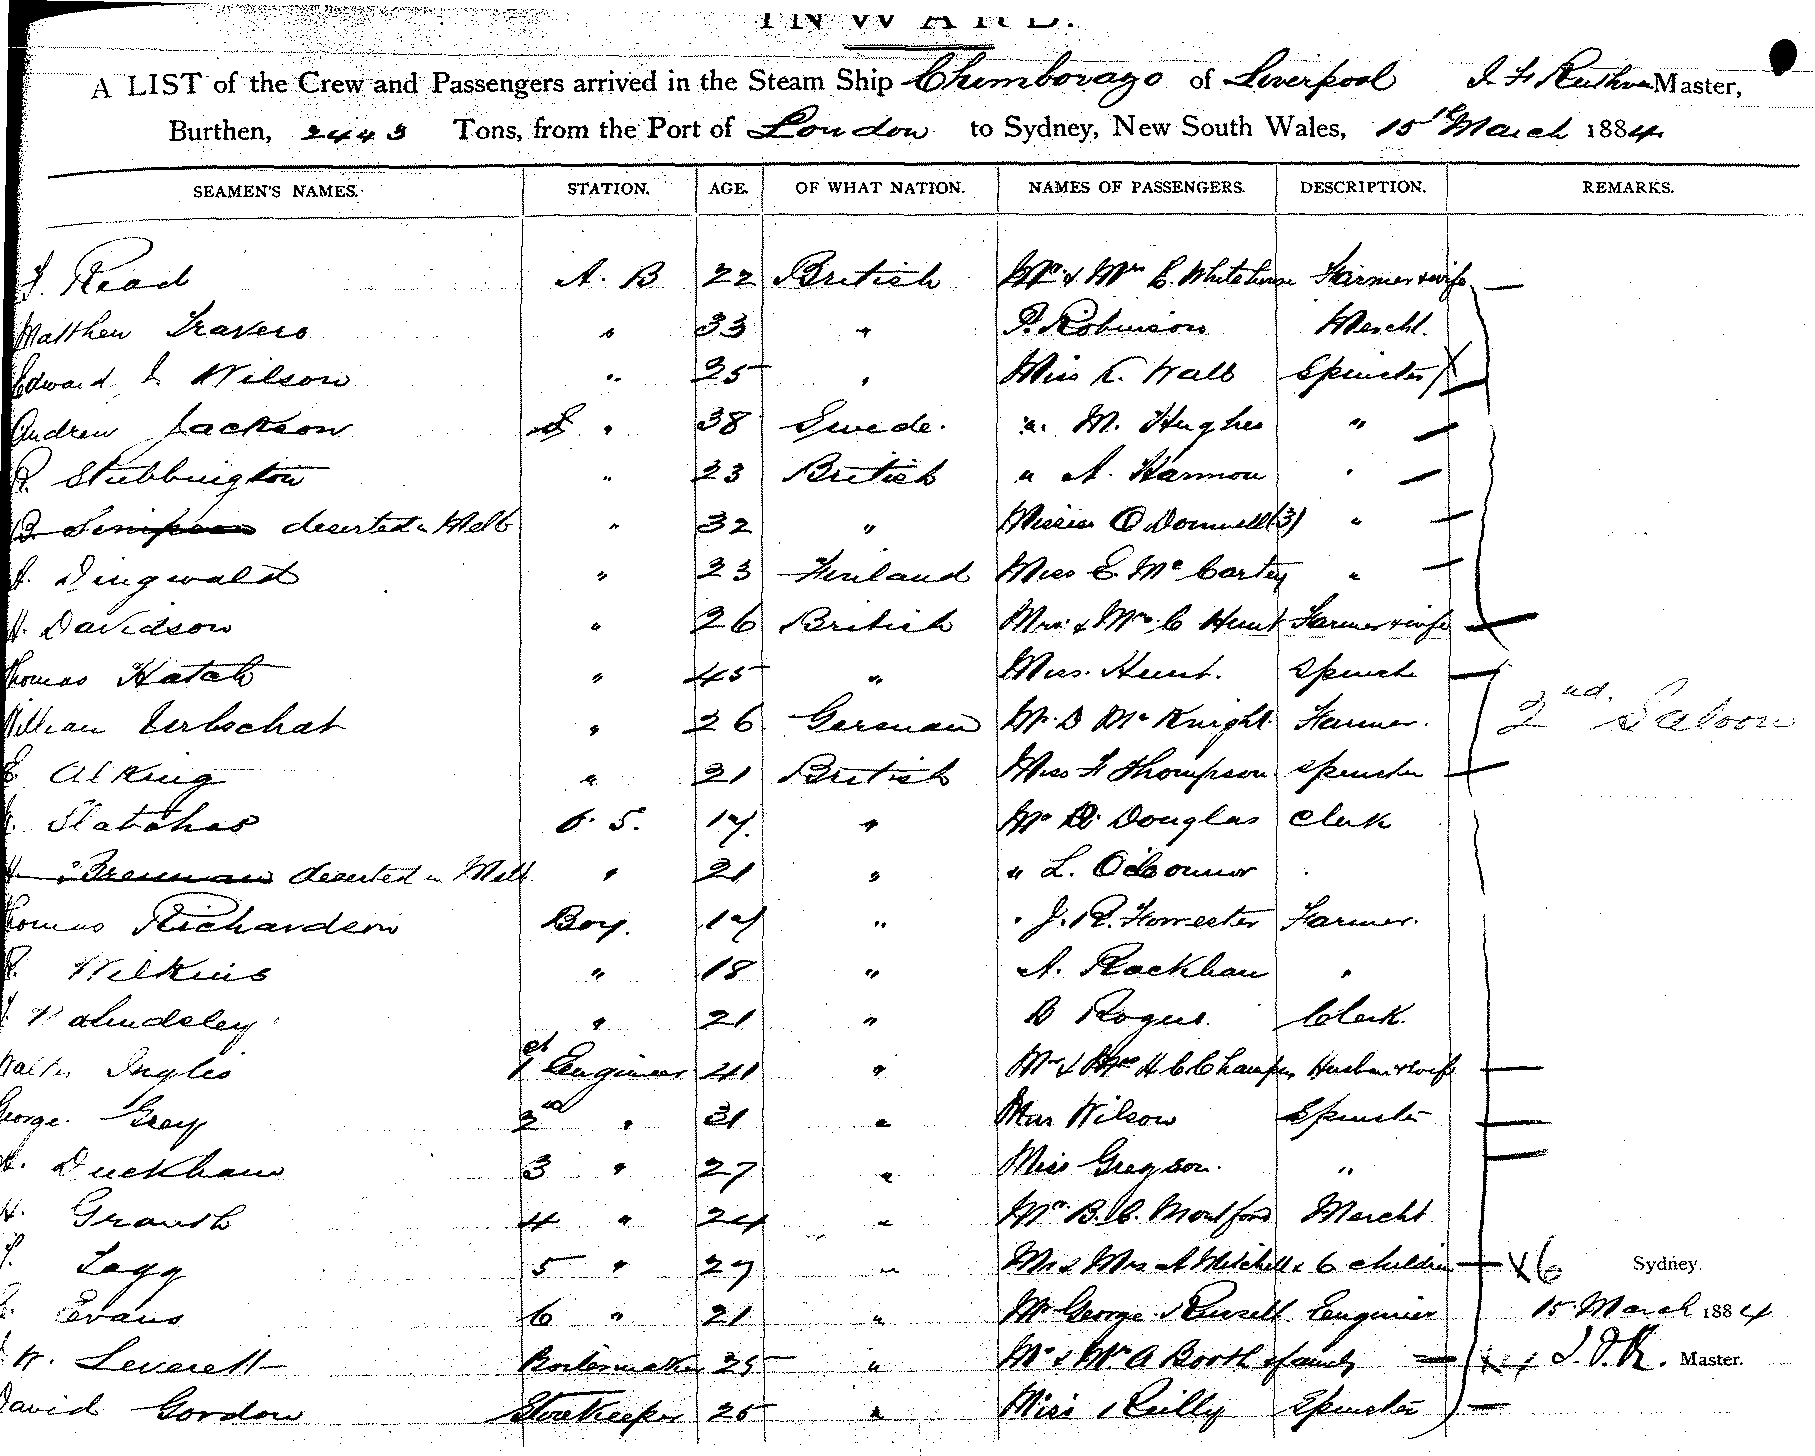 INWARD.
A LIST of the Crew and Passengers arrived in the Steam Ship Chimborazo of Liverpool J. F. Ruthven Master,
Burthen, 2443 Tons, from the Port of London to Sydney, New South Wales, 15th March 1884
SEAMEN'S NAMES. STATION. AGE. OF WHAT NATION. NAMES OF PASSENGERS. DESCRIPTION. REMARKS.
Read A. B 22 British Mr & Mrs Whitehouse Farmer & wife
Matthew Travers " 33 " Robinson Mercht.
Edward Wilson " 25 " Miss Wall Spinster
Andrew Jackson " 38 Swede. " M. Hughes "
R. Stubbington " 23 British " A. Harmon "
B. Simpson deserted in Melb " 32 " Misses O'Donnell (3) "
Dingwald " 23 Finland Miss E. Mc Carty "
Davidson " 26 British Mr & Mrs C Hunt Farmer & wife
Thomas Hatch " 45 " Miss. Hunt. Spinster
William Urbschat " 26 German Mr D McKnight Farmer. 2nd. Saloon
E Alking " 21 British Miss F Thompson Spinster
O. S. 17. " Mr Douglas Clerk
Brennan deserted in Melb " 21 " " L. O'Connor
Thomas Richardson Boy. 17 " " J. R. Forrester Farmer.
Wilkins " 18 " A. Rackham "
Lindsley " 21 " Clerk.
Walter Inglis 1st Engineer 41 " Mr & Mrs H C Husband & wife
George. Grey 2nd " 31 " Miss Wilson Spinster
Duckham 3 " 27 " Miss Gregson. "
H. 4 " 24 " Mr B. C. Montford Mercht
5 " 27 " Mr & Mrs A Mitchell & 6 children X6 Sydney.
Evans 6 " 21 " Mr George Russell Engineer 15 March 1884
W. Leverett Boilermaker 25 " Mr & Mrs A Booth & family J. F. R. Master.
David Gordon Storekeeper 25 " Miss Reilly Spinster